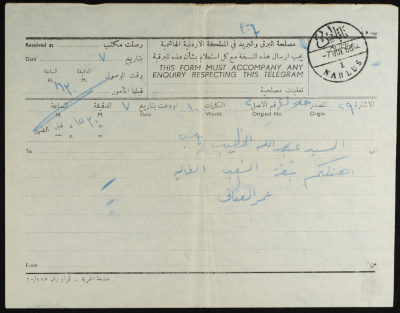 ٢٠٦
مصلحة البرق والبريد في المملكة الاردنية الهاشمية
يجب ارسال هذه النسخة مع كل استعلام بشأن هذه البرقية
THIS FORM MUST ACCOMPANY ANY
ENQUIRY RESPECTING THIS TELEGRAM
Received at وصلت مكتب
Date ٧ بتاريخ
الساعة H. الدقيقة M. وقت الوصول
H. M. قبلها المأمور
تعليمات مصلحية
NABLUS
1
الاشارة ٢٩ المصدر Origin رقم الاصل Original No. الكلمات Words ١٠ اودعت بتاريخ Date ٧ الدقيقة M. الساعة H.
قبل
To الى
السيد عبد الله الخطيب
اهنئكم بثقة الشعب الغالية
عمر
From من